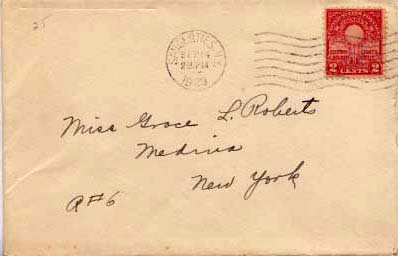 25
1929
2 CENTS 2
Miss Grace L. Roberts
Medina
New York
R#6